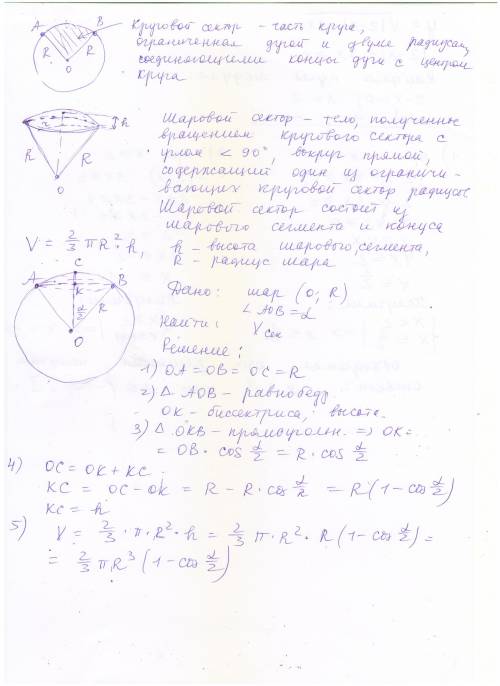 A B Круговой сектор - часть круга,
R R ограниченная дугой и двумя радиусами,
O соединяющими концы дуги с центром
круга
r h Шаровой сектор - тело, полученное
R R вращением кругового сектора с
углом < 90°, вокруг прямой,
O содержащий один из ограничи-
вающих круговой сектор радиусов
Шаровой сектор состоит из
шарового сегмента и конуса
V = 2/3 πR²·h, h - высота шарового сегмента,
R - радиус шара
C
A K B
α/2 R
O
Дано: шар (O; R)
∠AOB = α
Найти: Vсек
Решение:
1) OA = OB = OC = R
2) △ AOB - равнобедр.
OK - биссектриса, высота.
3) △ OKB - прямоуголн. => OK =
= OB · cos α/2 = R · cos α/2
4) OC = OK + KC
KC = OC - OK = R - R · cos α/2 = R (1 - cos α/2)
KC = h
5) V = 2/3 · π · R² · h = 2/3 π · R² · R (1 - cos α/2) =
= 2/3 πR³ (1 - cos α/2)